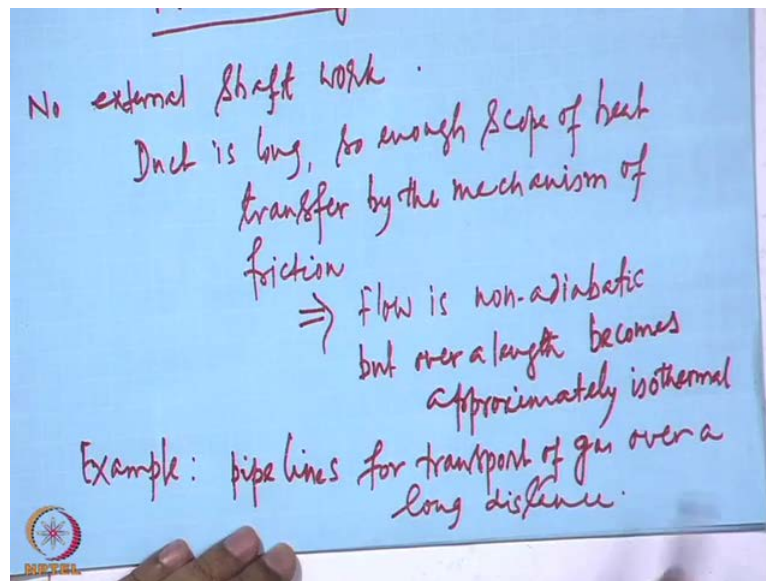 No external shaft work.
Duct is long, so enough scope of heat
transfer by the mechanism of
friction
⇒ Flow is non-adiabatic
but over a length becomes
approximately isothermal
Example: pipe lines for transport of gas over a
long distance.
NPTEL